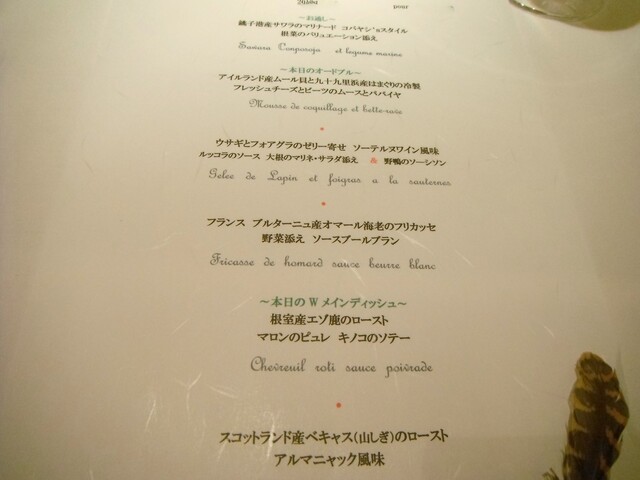 pour
～お通し～
銚子港産サワラのマリナード コバヤシ"nスタイル
根菜のバリュエーション添え
et legume marine
～本日のオードブル～
アイルランド産ムール貝と九十九里浜産はまぐりの冷製
フレッシュチーズとビーツのムースとパパイヤ
Mousse de coquillage et bette-rave
ウサギとフォアグラのゼリー寄せ ソーテルヌワイン風味
ルッコラのソース 大根のマリネ・サラダ添え & 野鴨のソーシソン
Gelee de Lapin et foigras a la sauternes
フランス ブルターニュ産オマール海老のフリカッセ
野菜添え ソースブールブラン
Fricasse de homard sauce beurre blanc
～本日のWメインディッシュ～
根室産エゾ鹿のロースト
マロンのピュレ キノコのソテー
Chevreuil roti sauce poivrade
スコットランド産ベキャス(山しぎ)のロースト
アルマニャック風味